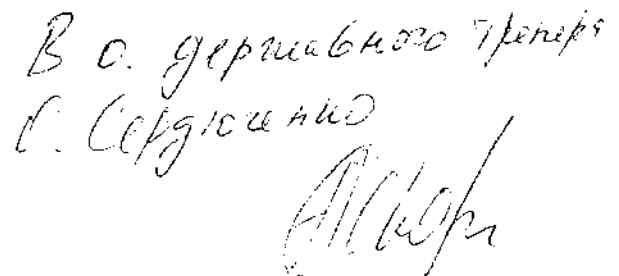 В о. державного тренера
С. Сердюченко